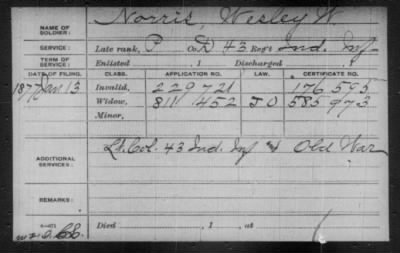 NAME OF SOLDIER: Norris, Wesley W.
SERVICE: Late rank, P Co. D, 43 Reg't Ind. Inf
TERM OF SERVICE: Enlisted , 1 Discharged , 1
DATE OF FILING. CLASS. APPLICATION NO. LAW. CERTIFICATE NO.
1877 Jan 13 Invalid, 229 721 176 595
Widow, 811 452 J O 585 973
Minor,
ADDITIONAL SERVICES: Lt. Col. 43 Ind. Inf Old War
REMARKS:
Died , 1 , at